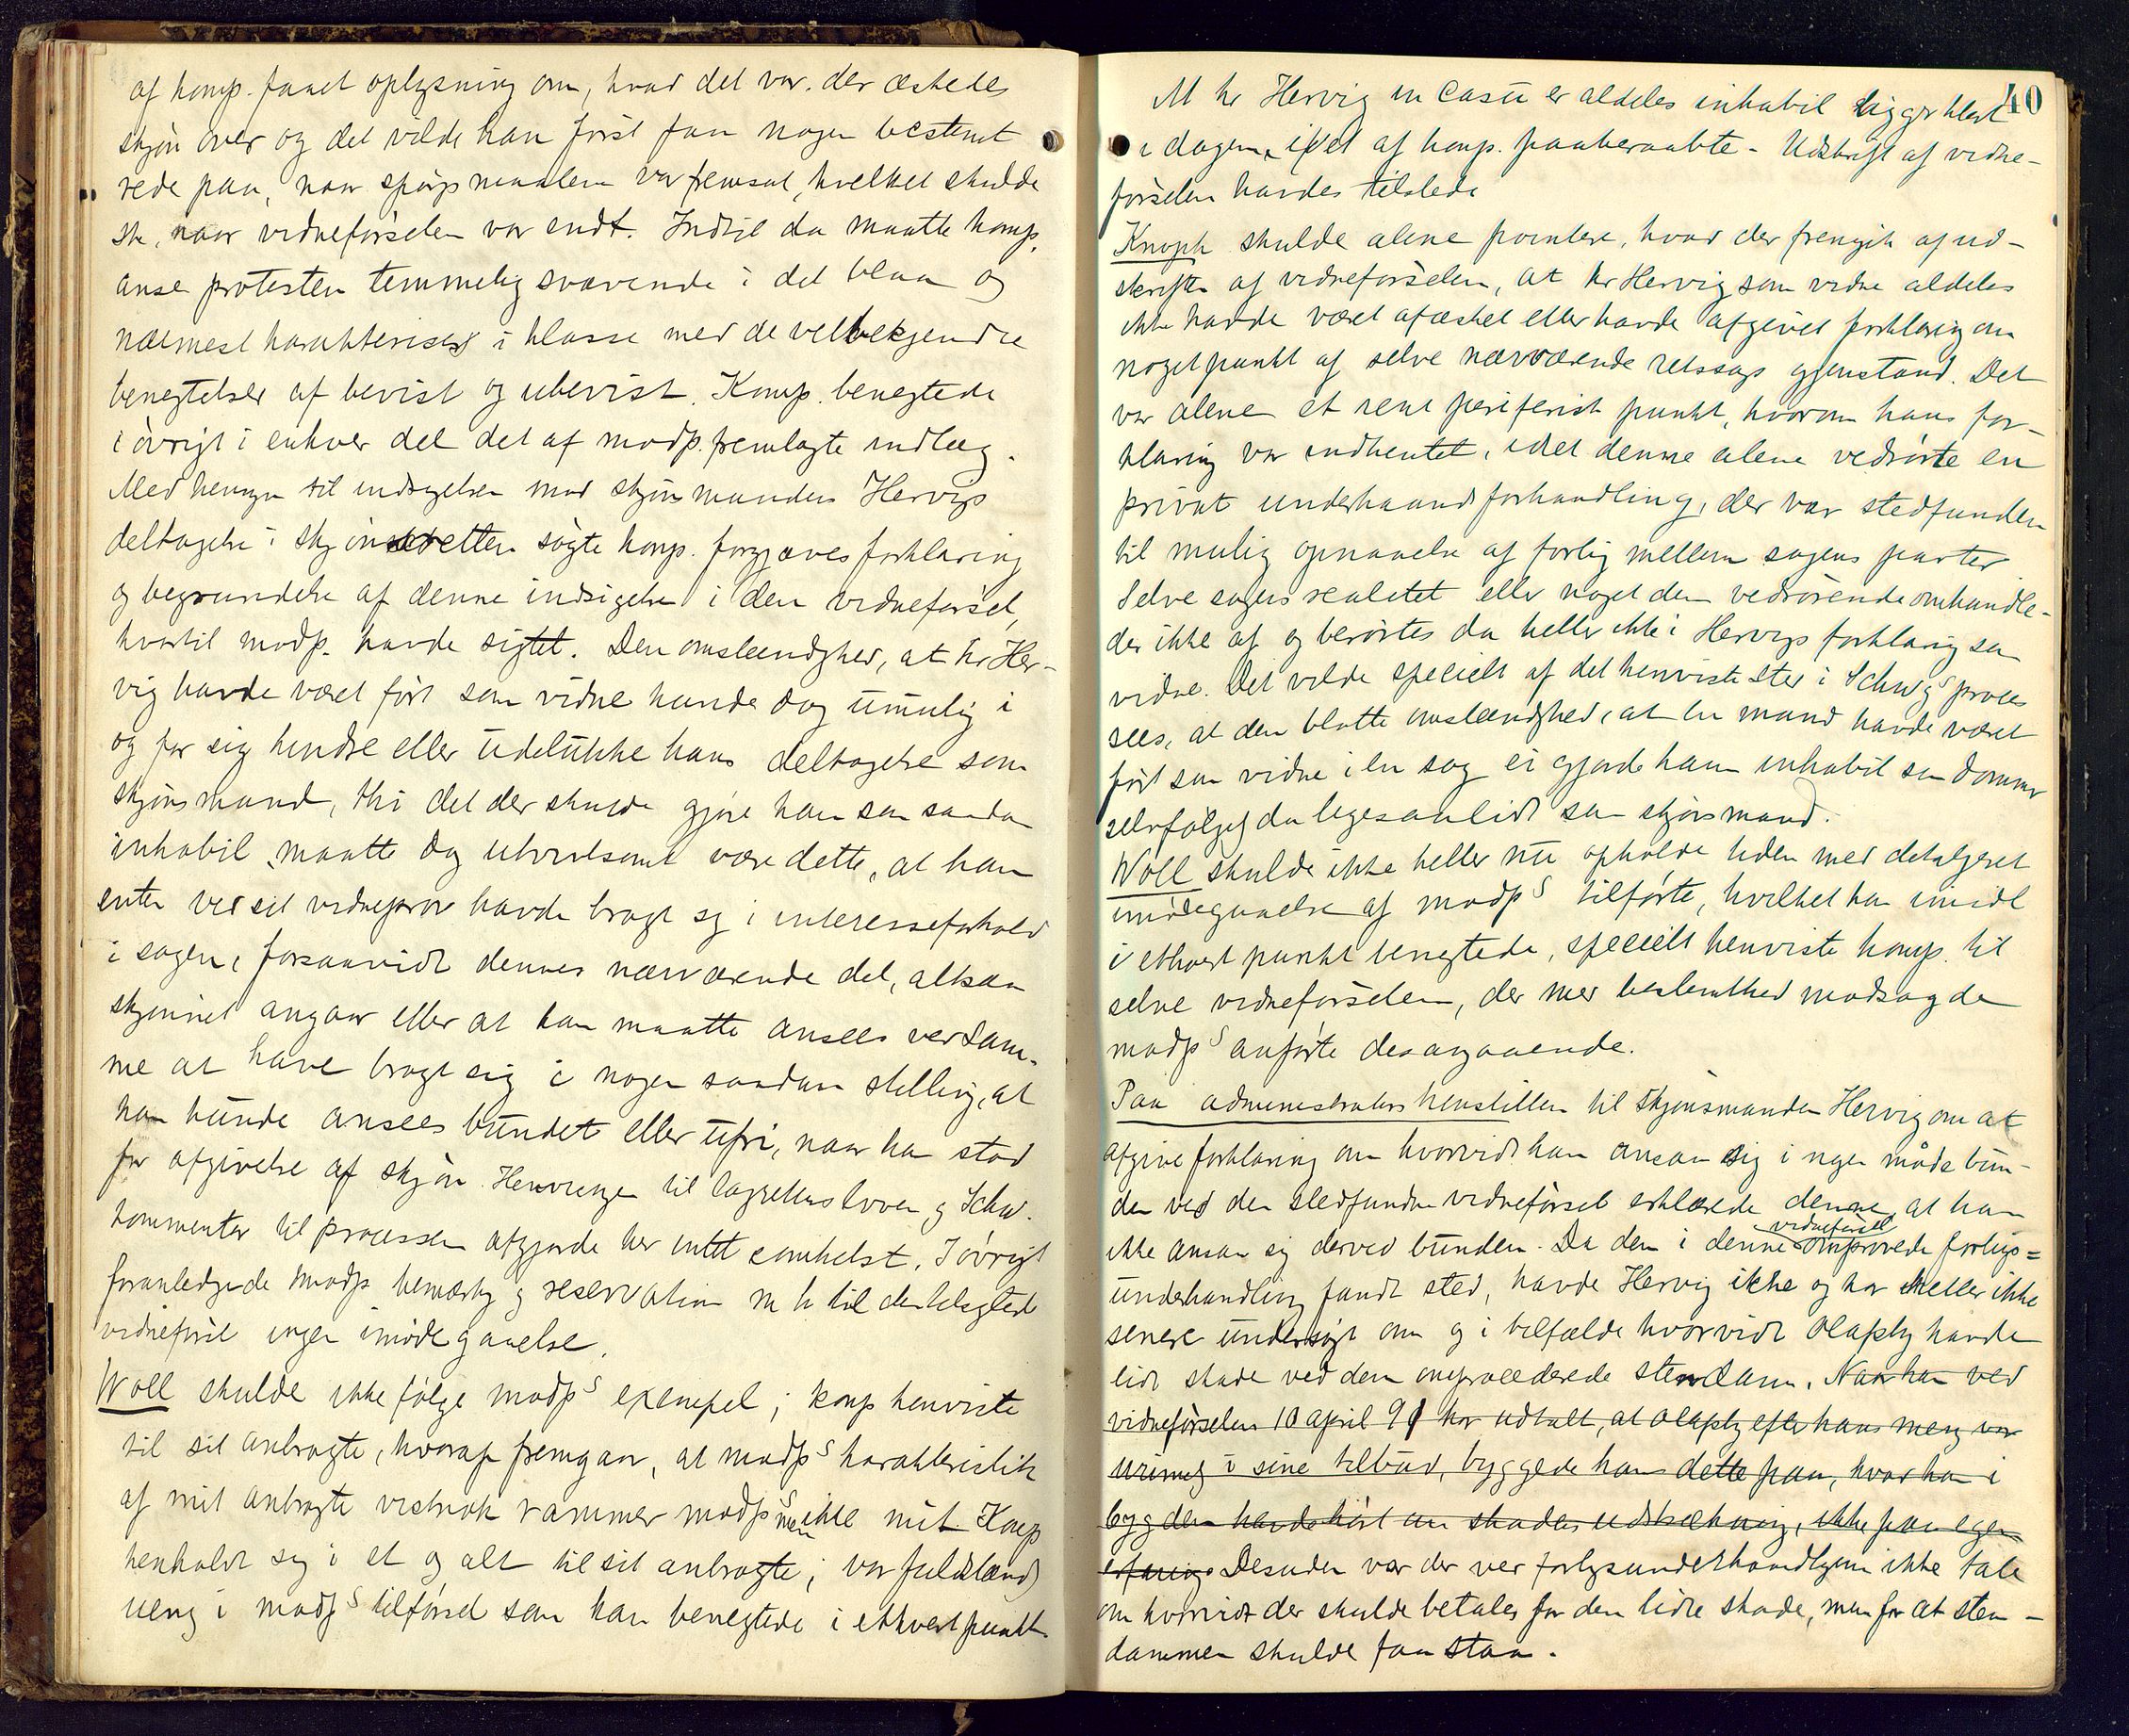 af komp. faaet oplysning om, hvad det var, der æskedes
skjøn over og det vilde han først faa nogen bestemt
rede paa, naar spørgsmaalene var fremsat, hvilket skulde
ske, naar vidneførselen var endt. Indtil da maatte komp.
anse protesten temmelig svævende i det blaa og
nærmest karakterisere i klasse med de velbekjendte
benegtelser af bevist og ubevist. Komp. benegtede
iøvrigt i enhver del det af modp. fremlagte indlæg.
Med hensyn til indsigelsen mod skjønsmanden Hervigs
deltagelse i skjønsretten søgte komp. forgjæves forklaring
og begrundelse af denne indsigelse i den vidneførsel,
hvortil modp. havde sigtet. Den omstændighed, at hr Her-
vig havde været ført som vidne kunde dog umulig i
og for sig hindre eller udelukke hans deltagelse som
skjønsmand, thi det der skulde gjøre ham som saadan
inhabil, maatte dog utvivlsomt være dette, at han
enten ved sit vidneprov havde bragt sig i interesseforhold
i sagen, forsaavidt dennes nærværende del, altsaa
skjønnet angaar eller at han maatte ansees ved sam-
me at have bragt sig i nogen saadan stilling, at
han kunde ansees bundet eller ufri, naar han stod
for afgivelse af skjøn. Henvisningen til lagrettensloven og Schw.
kommentar til processen afgjorde her intet somhelst. Iøvrigt
foranledigede modps bemærkn og reservation m h til den tilsigtede
vidneførsel ingen imødegaaelse.
Woll skulde ikke følge modps exempel; komp henviste
til sit anbragte, hvoraf fremgaar, at modps karakteristik
af mit anbragte vistnok rammer modps men ikke mit. Komp
henholdt sig i et og alt til sit anbragte; var fuldstændig
uenig i modps tilførsel som han benegtede i ethvert punkt.
40
At hr Hervig in casu er aldeles inhabil ligger klart
i dagen, ifl et af komp. paaberaabte - Udskrift af vidne-
førselen havdes tilstede
Knoph skulde alene pointere, hvad der fremgik af ud-
skriften af vidneførselen, at hr Hervig som vidne aldeles
ikke havde været afæsket eller havde afgivet forklaring om
noget punkt af selve nærværende retssags gjenstand. Det
var alene et rent periferisk punkt, hvorom hans for-
klaring var indhentet, idet denne alene vedrørte en
privat underhaandsforhandling, der var stedfunden
til mulig opnaaelse af forlig mellem sagens parter
Selve sagens realitet eller noget den vedrørende omhandle-
des ikke af og berørtes da heller ikke i Hervigs forklaring som
vidne. Det vilde specielt af det henviste sted i Schwgs proces
sees, at den blotte omstændighed, at en mand havde været
ført som vidne i en sag ei gjorde ham inhabil som dommer
selvfølgelig da ligesaalidt som skjønsmand.
Woll skulde ikke heller nu opholde tiden med detaljeret
imødegaaelse af modps tilførte, hvilket han imidl
i ethvert punkt benegtede, specielt henviste komp. til
selve vidneførselen, der med bestemthed modsagde
modps anførte desangaaende.
Paa administrators henstillen til skjønsmanden Hervig om at
afgive forklaring om hvorvidt han ansaa sig i nogen måde bun-
den ved den stedfundne vidneførsel erklærede denne, at han
ikke ansaa sig derved bunden. Da den i denne vidneførsel omprovede forligs=
underhandling fandt sted, havde Hervig ikke og har heller ikke
senere undersøgt om og i tilfælde hvorvidt Olafsby havde
lidt skade ved den omprocederede stendam. Naar han ved
vidneførselen 10 april 91 har udtalt, at Olafsby efter hans mening var
urimelig i sine tilbud, byggede han dette paa, hvad han i
bygden havde hørt om skadens udstrækning, ikke paa egen
erfaring. Desuden var der ved forligsunderhandlingerne ikke tale
om hvorvidt der skulde betales for den lidte skade, men for at sten-
dammen skulde faa staa.